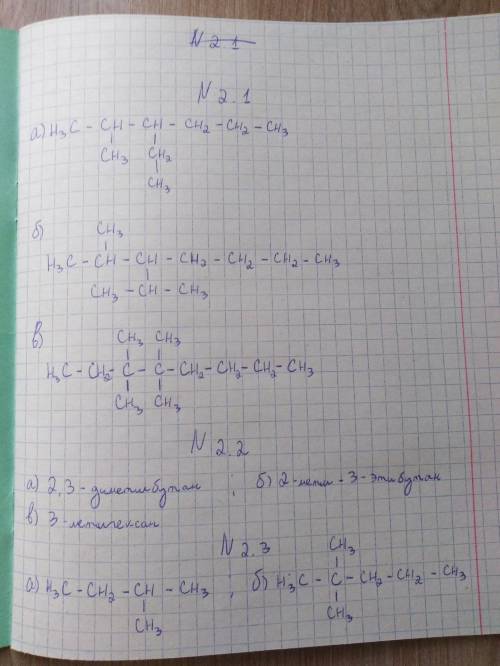 N 2.1
N 2.1
а) H₃C - CH - CH - CH₂ - CH₂ - CH₃
CH₃ CH₂
CH₃
б)
CH₃
H₃C - CH - CH - CH₂ - CH₂ - CH₂ - CH₃
CH₃ - CH - CH₃
в)
CH₃ CH₃
H₃C - CH₂ - C - C - CH₂ - CH₂ - CH₂ - CH₃
CH₃ CH₃
N 2.2
а) 2,3-диметилбутан ; б) 2-метил-3-этилбутан
в) 3-метилгексан
N 2.3
CH₃
а) H₃C - CH₂ - CH - CH₃ ; б) H₃C - C - CH₂ - CH₂ - CH₃
CH₃ CH₃